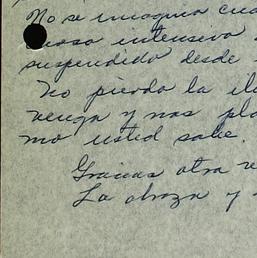 No se imagina cua
curso intensivo
suspendido desde
No pierda la ilu
venga y nos pla
mo usted sabe.
Gracias otra ve
La abraza y